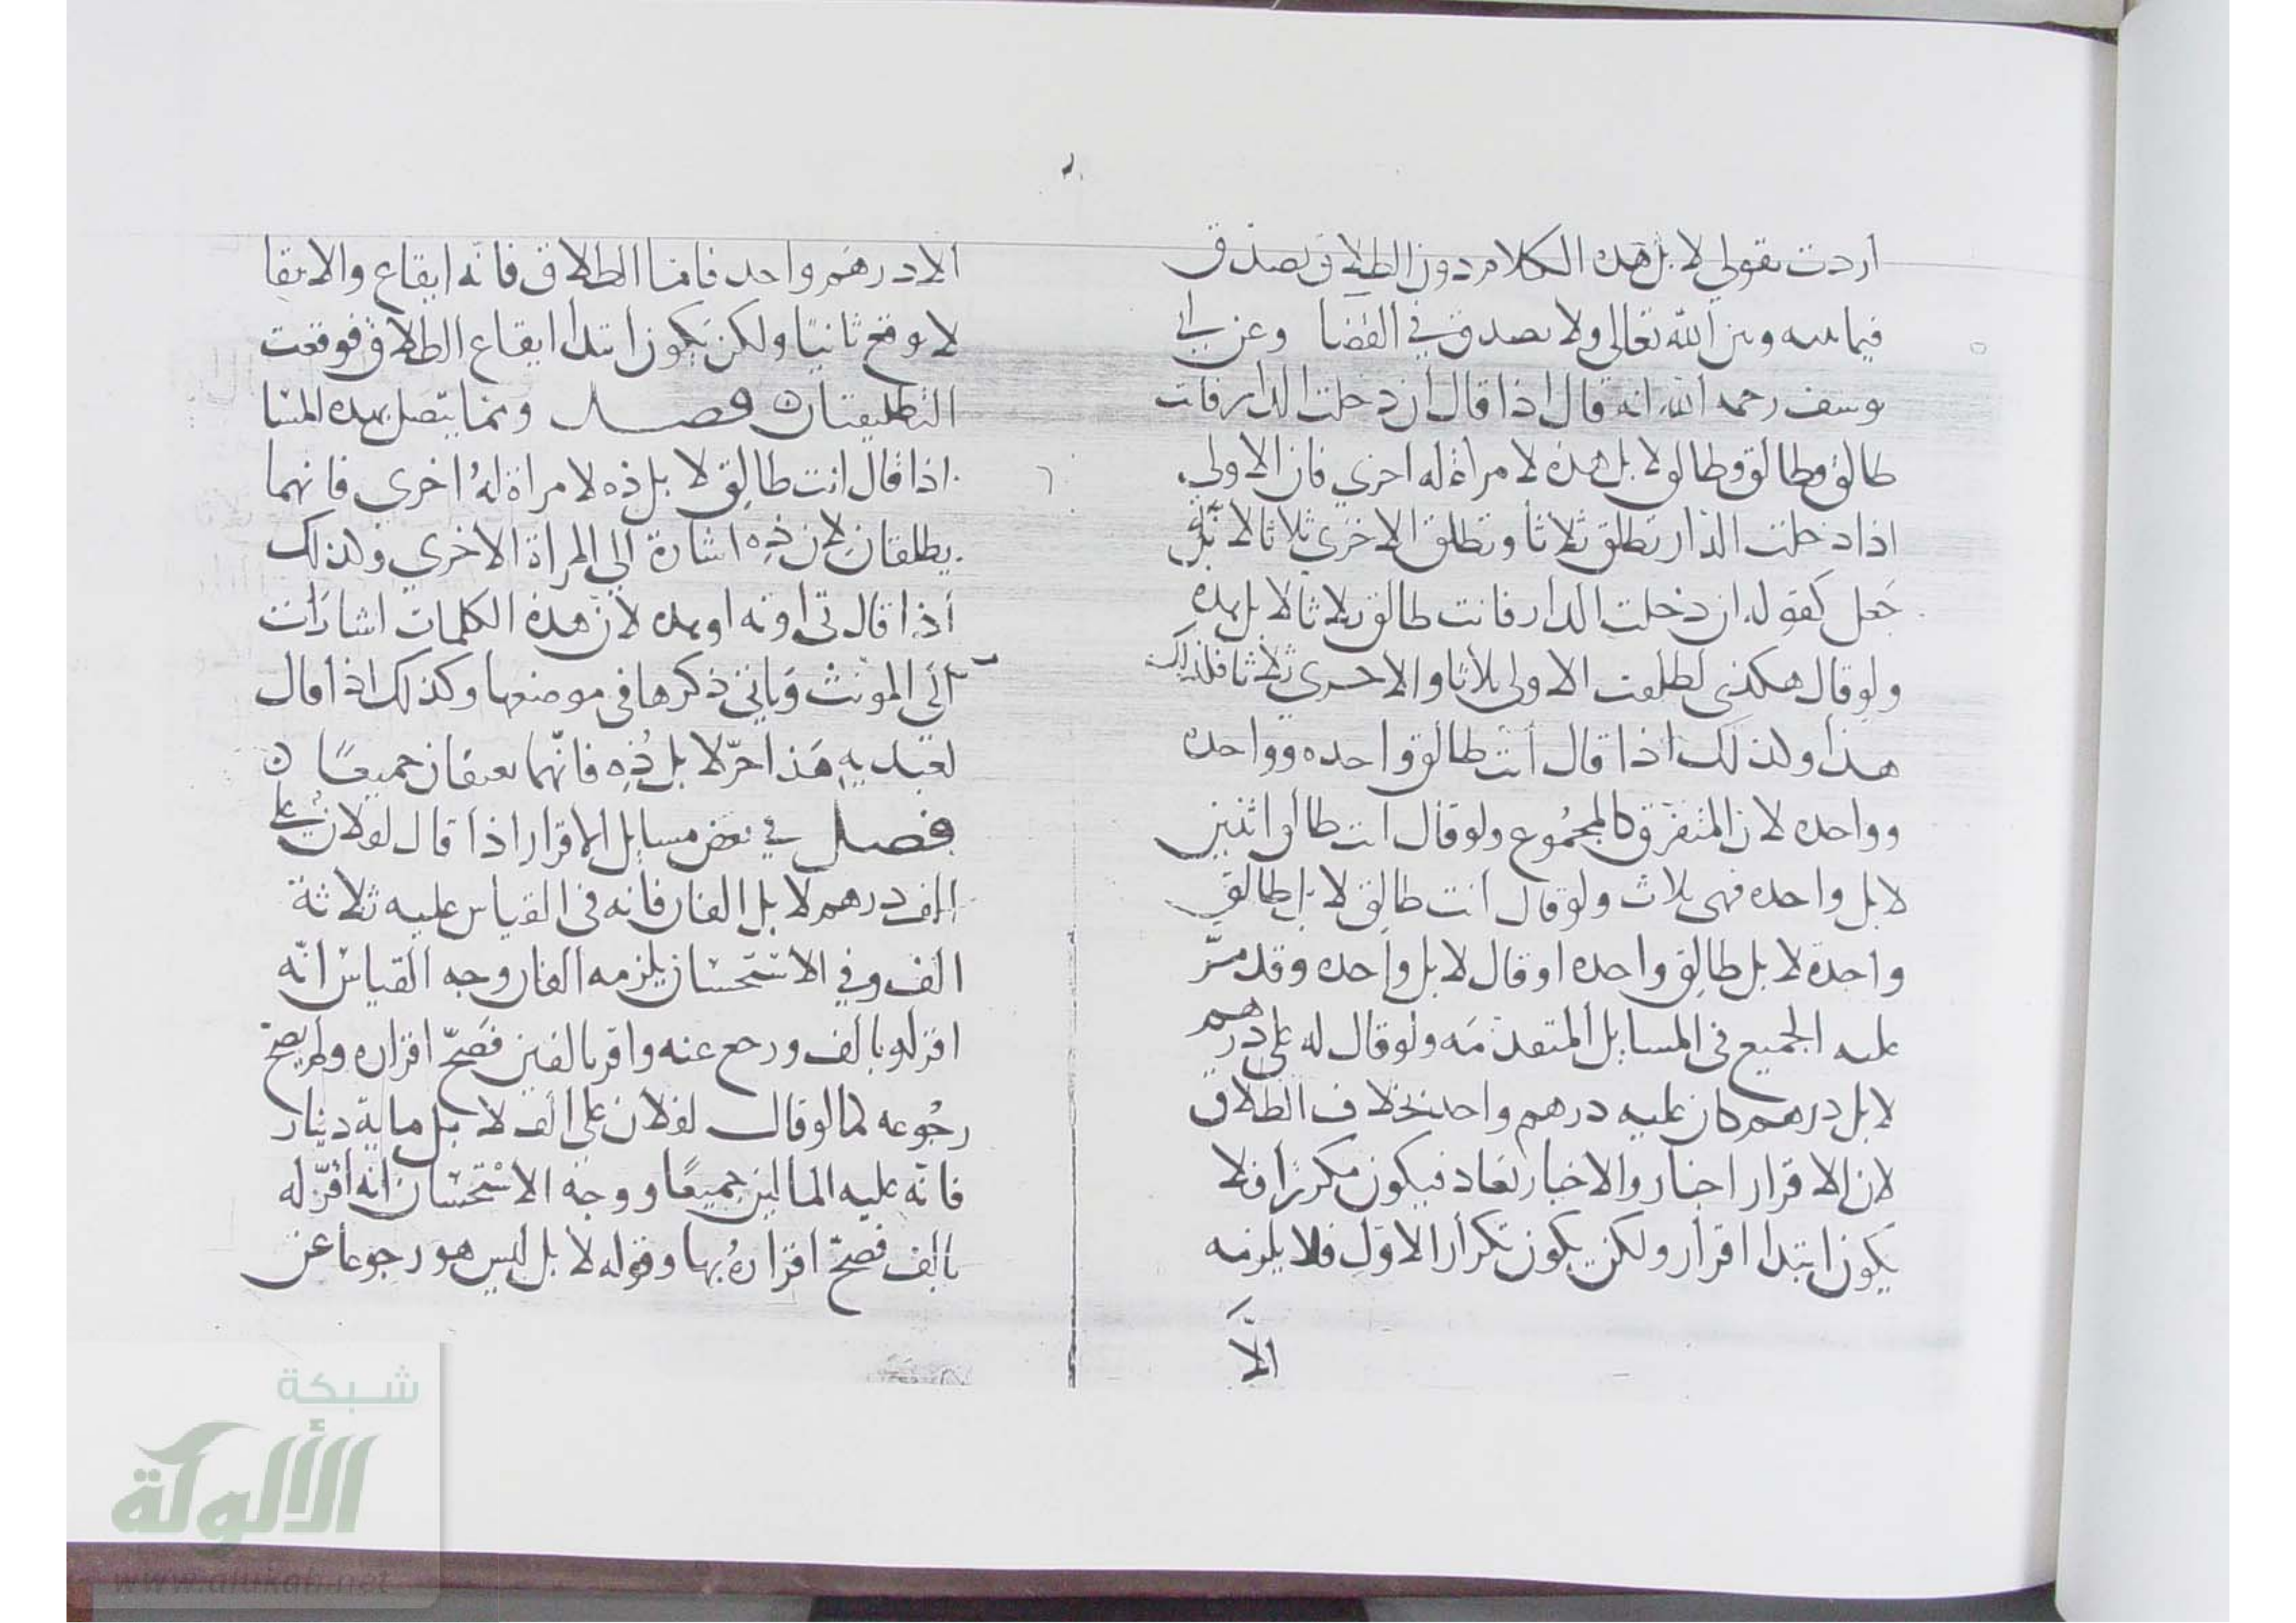 أردت بقولي لا بل هذه الكلام دون الطلاق يصدق
فيما بينه وبين الله تعالى ولا يصدق في القضا وعن ابي
يوسف رحمه الله انه قال اذا قال ان دخلت الدار فانت
طالق وطالق وطالق لا بل هذه لامرأة له اخرى فان الاولى
اذا دخلت الدار تطلق ثلاثا وتطلق الاخرى ثلاثا لانه
جعل كقوله ان دخلت الدار فانت طالق ثلاثا لا بل هذه
ولو قال هكذى لطلقت الاولى ثلاثا والاخرى ثلاثا فكذلك
هذا وكذلك اذا قال أنت طالق واحده وواحده
وواحده لان المتفرق كالمجموع ولو قال انت طالق اثنين
لا بل واحده فهى ثلاث ولو قال أنت طالق لا بل طالق
واحدة لا بل طالق واحده او قال لا بل واحده وقد مرّ
عليه الجميع فى المسايل المتقدّمه ولو قال له علي درهم
لا بل درهم كان عليه درهم واحد بخلاف الطلاق
لان الاقرار اخبار والاخبار تعاد فيكون مكررًا فلا
يكون ابتدا اقرار ولكن يكون تكرار الاوّل فلا يلزمه
الّا
ألا درهم واحد فامّا الطلاق فانّه ايقاع والايقا
لا يوقع ثانيًا ولكن يكون ابتدا ايقاع الطلاق فوقعت
التطليقتان فصل ومما يتصل بهذه المسا
اذا قال انت طالق لا بل ذه لامراة لهُ اخرى فانهما
يطلقان لان ذِه اشارة الي المراة الاخري وكذلك
أذا قال تى او ته او هذه لان هذه الكلمات اشارات
الي المونث وياتي ذكرها في موضعها وكذلك اذا قال
لعبديهِ هَذا حرّ لا بل ذِه فانّهما يعتقان جميعًا
فصل في بعض مسايل الاقرار اذا قال لفلان علي
الف درهم لا بل الفان فانه فى القياس عليه ثلاثة
الف وفي الاستحسان يلزمه الفان وجه القياس انّه
اقر له بالف ورجع عنه واقر بالفين فصَحّ اقراره ولم يصح
رجُوعه كما لو قال لفلان علي الف لا بل ماية دينار
فانّه عليه المالين جميعًا ووجه الاسْتحسان انه أقرّ له
بالف فصحّ اقرارهُ بها وقوله لا بل ليس هو رجوعا عن
شبكة
الألوكة
www.alukah.net